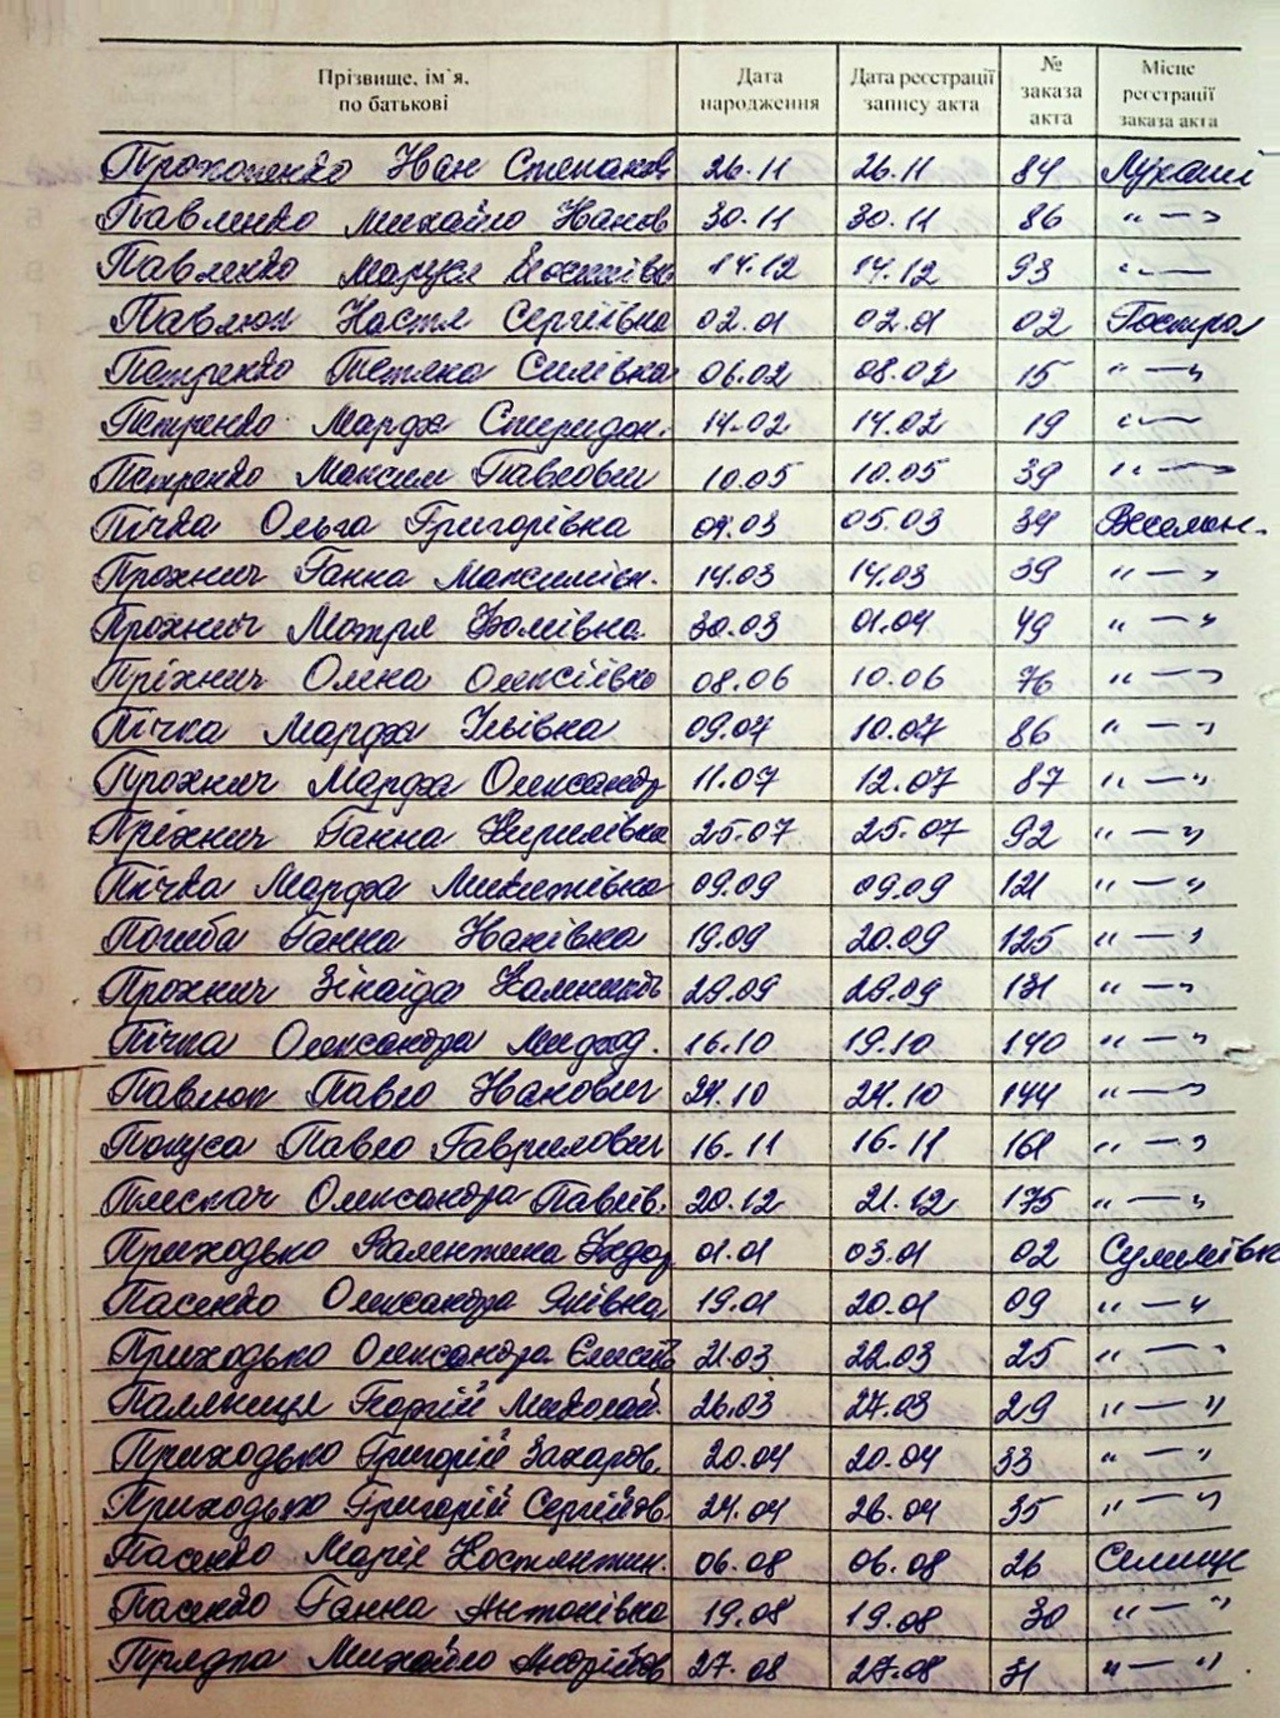 Прізвище, ім`я, по батькові | Дата народження | Дата реєстрації запису акта | № заказа акта | Місце реєстрації заказа акта
Прокопенко Іван Степанов 26.11 26.11 84 Лукаші
Павленко Михайло Іванов 30.11 30.11 86 " — "
Павленко Маруся Йосипівн 14.12 14.12 93 " —
Павлюк Настя Сергіївна 02.01 02.01 02 Гостра
Петренко Тетяна Силівна 06.02 08.02 15 " — "
Петренко Марфа Спиридон. 14.02 14.02 19 " —
Петренко Максим Павлович 10.05 10.05 39 " — "
Пічка Ольга Григорівна 04.03 05.03 34 Веселин.
Прохнич Ганна Максимівн. 14.03 14.03 39 " — "
Прохнич Мотря Хомівна 30.03 01.04 49 " — "
Пріхнич Олена Олексіївна 08.06 10.06 76 " — "
Пічка Марфа Ільівна 09.07 10.07 86 " — "
Прохнич Марфа Олександр 11.07 12.07 87 " — "
Пріхнич Ганна Кирилівна 25.07 25.07 92 " — "
Пічка Марфа Микитівна 09.09 09.09 121 " — "
Погиба Ганна Іванівна 19.09 20.09 125 " — "
Прохнич Зінаїда 29.09 29.09 131 " — "
Пічка Олександра 16.10 19.10 140 " — "
Павлюк Павло Іванович 24.10 24.10 144 " — "
Павло Гаврилович 16.11 16.11 161 " — "
Плескач Олександра Павлів. 20.12 21.12 175 " — "
Приходько Валентина Федор 01.01 03.01 02 Сулимівка
Пасенко Олександра Яківна 19.01 20.01 09 " — "
Приходько Олександра Єлисеїв 21.03 22.03 25 " — "
Паляниця Георгій Миколай. 26.03 27.03 29 " — "
Приходько Григорій Захаров. 20.04 20.04 33 " — "
Приходько Григорій Сергійов. 24.04 26.04 35 " — "
Пасенко Марія Костянтин. 06.08 06.08 26 Селище
Пасенко Ганна Антонівна 19.08 19.08 30 " — "
Прядка Михайло Андрійов 27.08 27.08 31 " — "